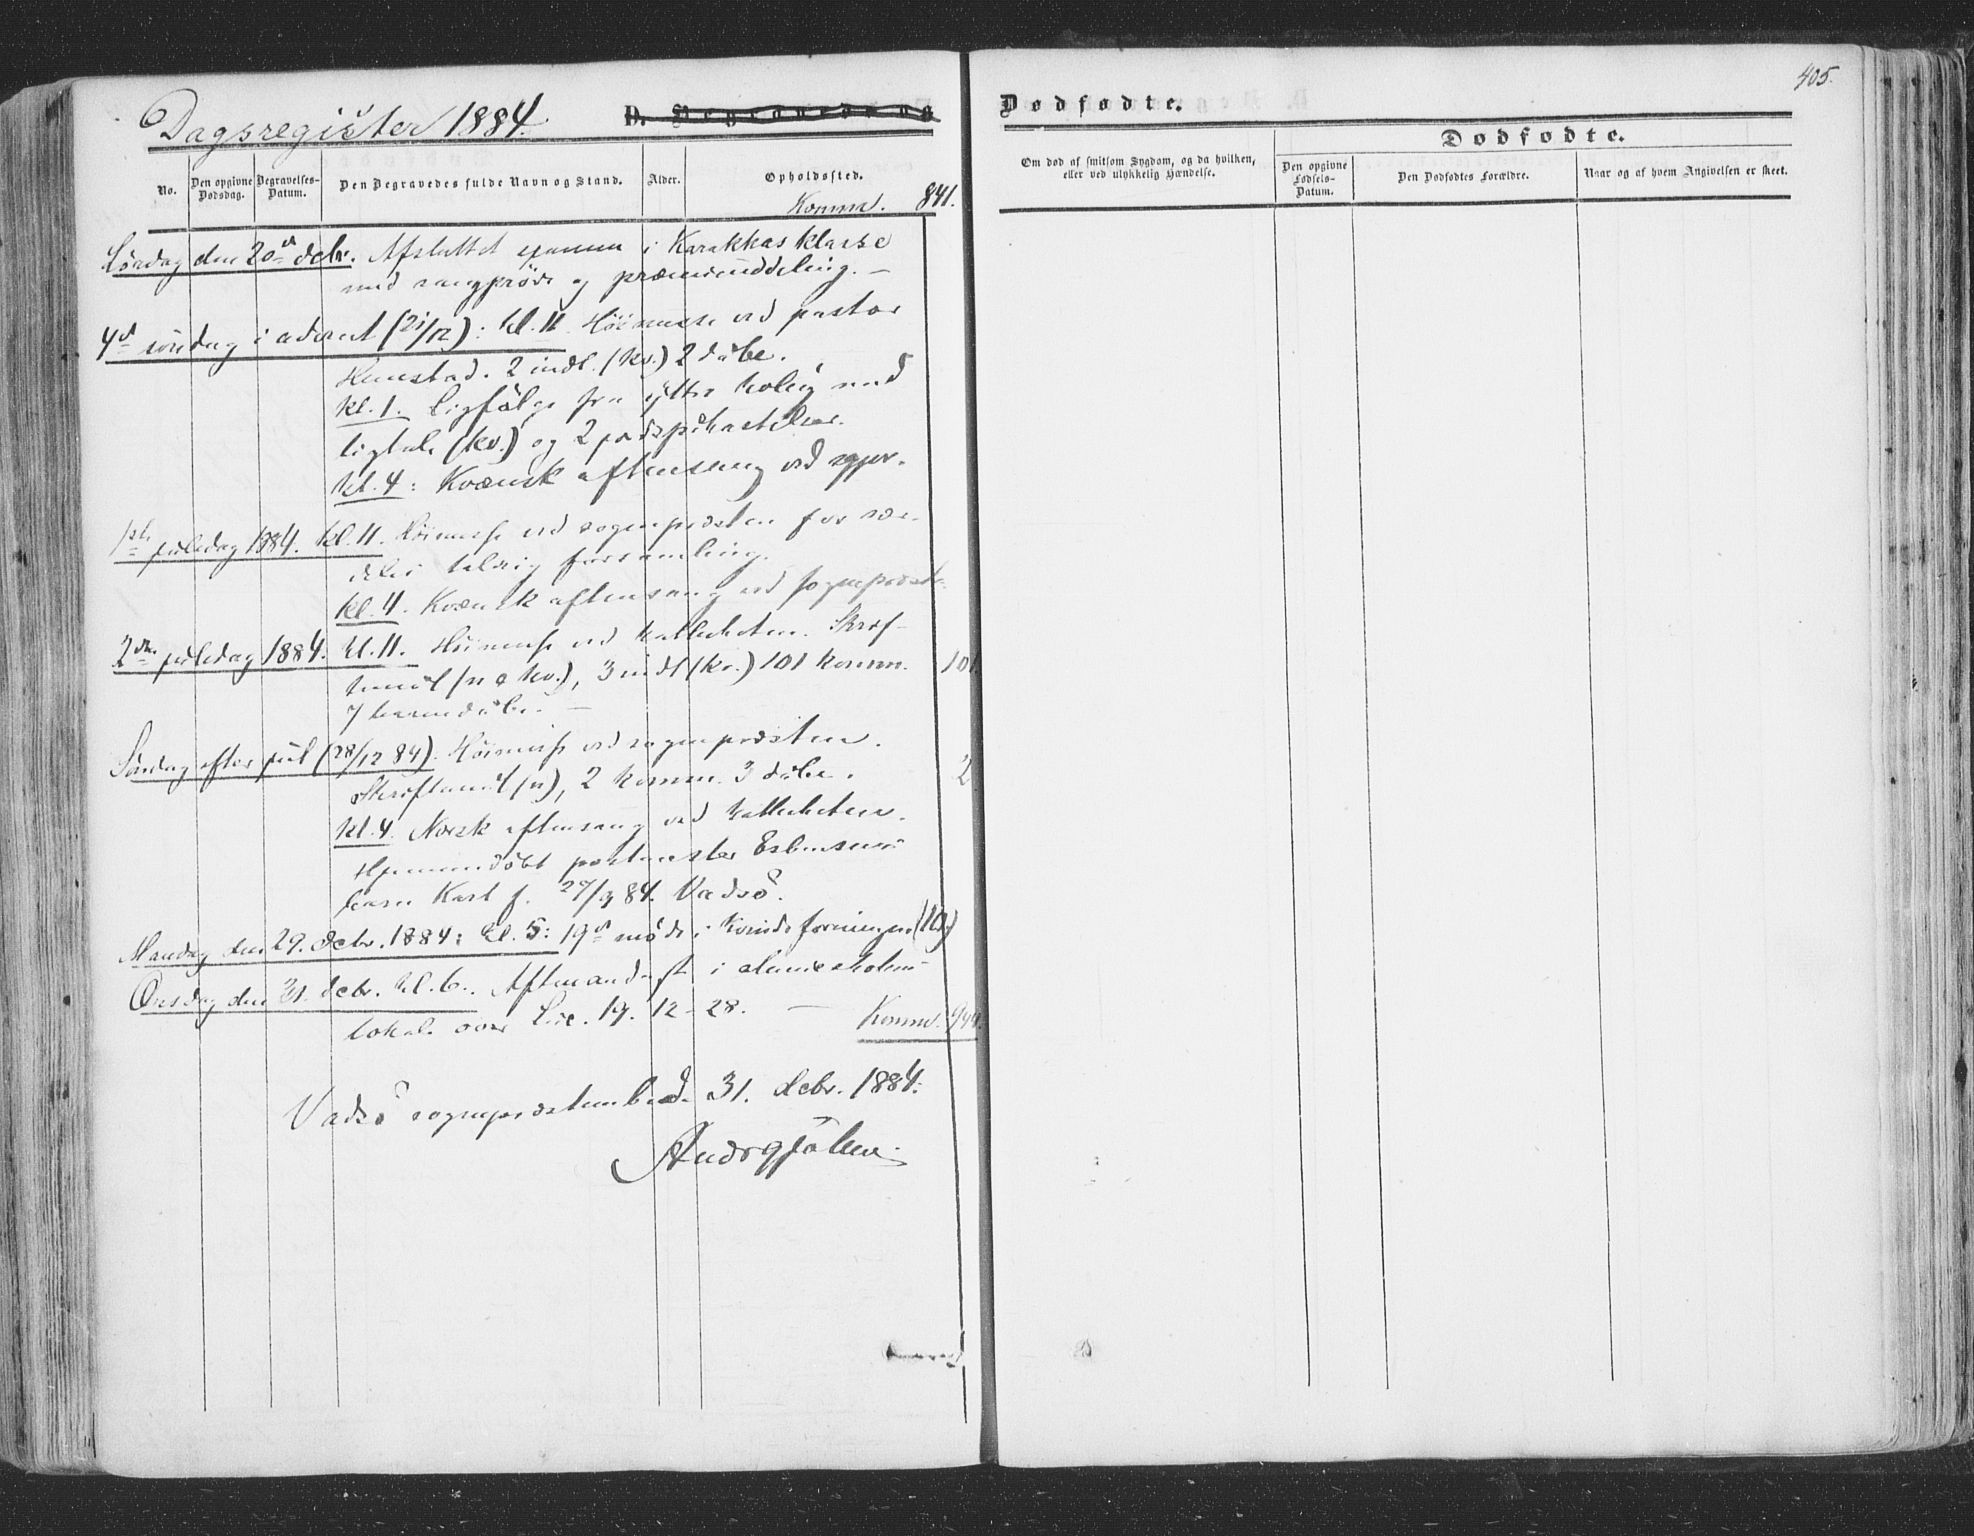 405.
Dagsregister 1884.
D. Begravede og
Dødfødte.
No.
Den opgivne Dødsdag.
Begravelses-Datum.
Den Begravedes fulde Navn og Stand.
Alder.
Opholdssted.
Komm. 841.
Lördag den 20de debr. Afsluttet examen i Karakkas klasse
med sangprøve og præmieuddeling. —
4de söndag i advent (21/12): kl. 11. Höimesse ved pastor
Hemstad. 2 indl. (kv.) 2 döbe.
kl. 1. Ligfölge fra ytter med
ligtale (kv.) og 2 jordspåkastelser.
kl. 4: Kvænsk aftensang ved sgpr.
1ste juledag 1884. kl. 11. Höimesse ved sognepræsten for sær-
deles talrig forsamling.
kl. 4. Kvænsk aftensang ved sognepræste
2den juledag 1884. kl. 11. Höimesse ved katheketen. Skrif-
temål (n & kv.), 3 indl (kv.) 101 komm. 101
7 barnedåbe. —
Söndag efter jul (28/12 84). Höimesse ved sognepræsten.
Skriftemål (n), 2 komm. 3 döbe. 2
kl. 4. Norsk aftensang ved katheketen.
Hjemmedöbt postmester Esbensens
barn Karl f. 84. Vadsö.
Mandag den 29. debr. 1884: kl. 5: 19de möde i kvindeforeningen (10)
Onsdag den 31. debr. kl. 6. Aftenandagt i almueskolens
lokale over Luc. 19. 12-28. —
Komm. 944.
Vadsö sognepræstembede 31. debr. 1884.
Om død af smitsom Sygdom, og da hvilken,
eller ved ulykkelig Hændelse.
Dødfødte.
Den opgivne Fødsels-Datum.
Den Dødfødtes Forældre.
Naar og af hvem Angivelsen er skeet.